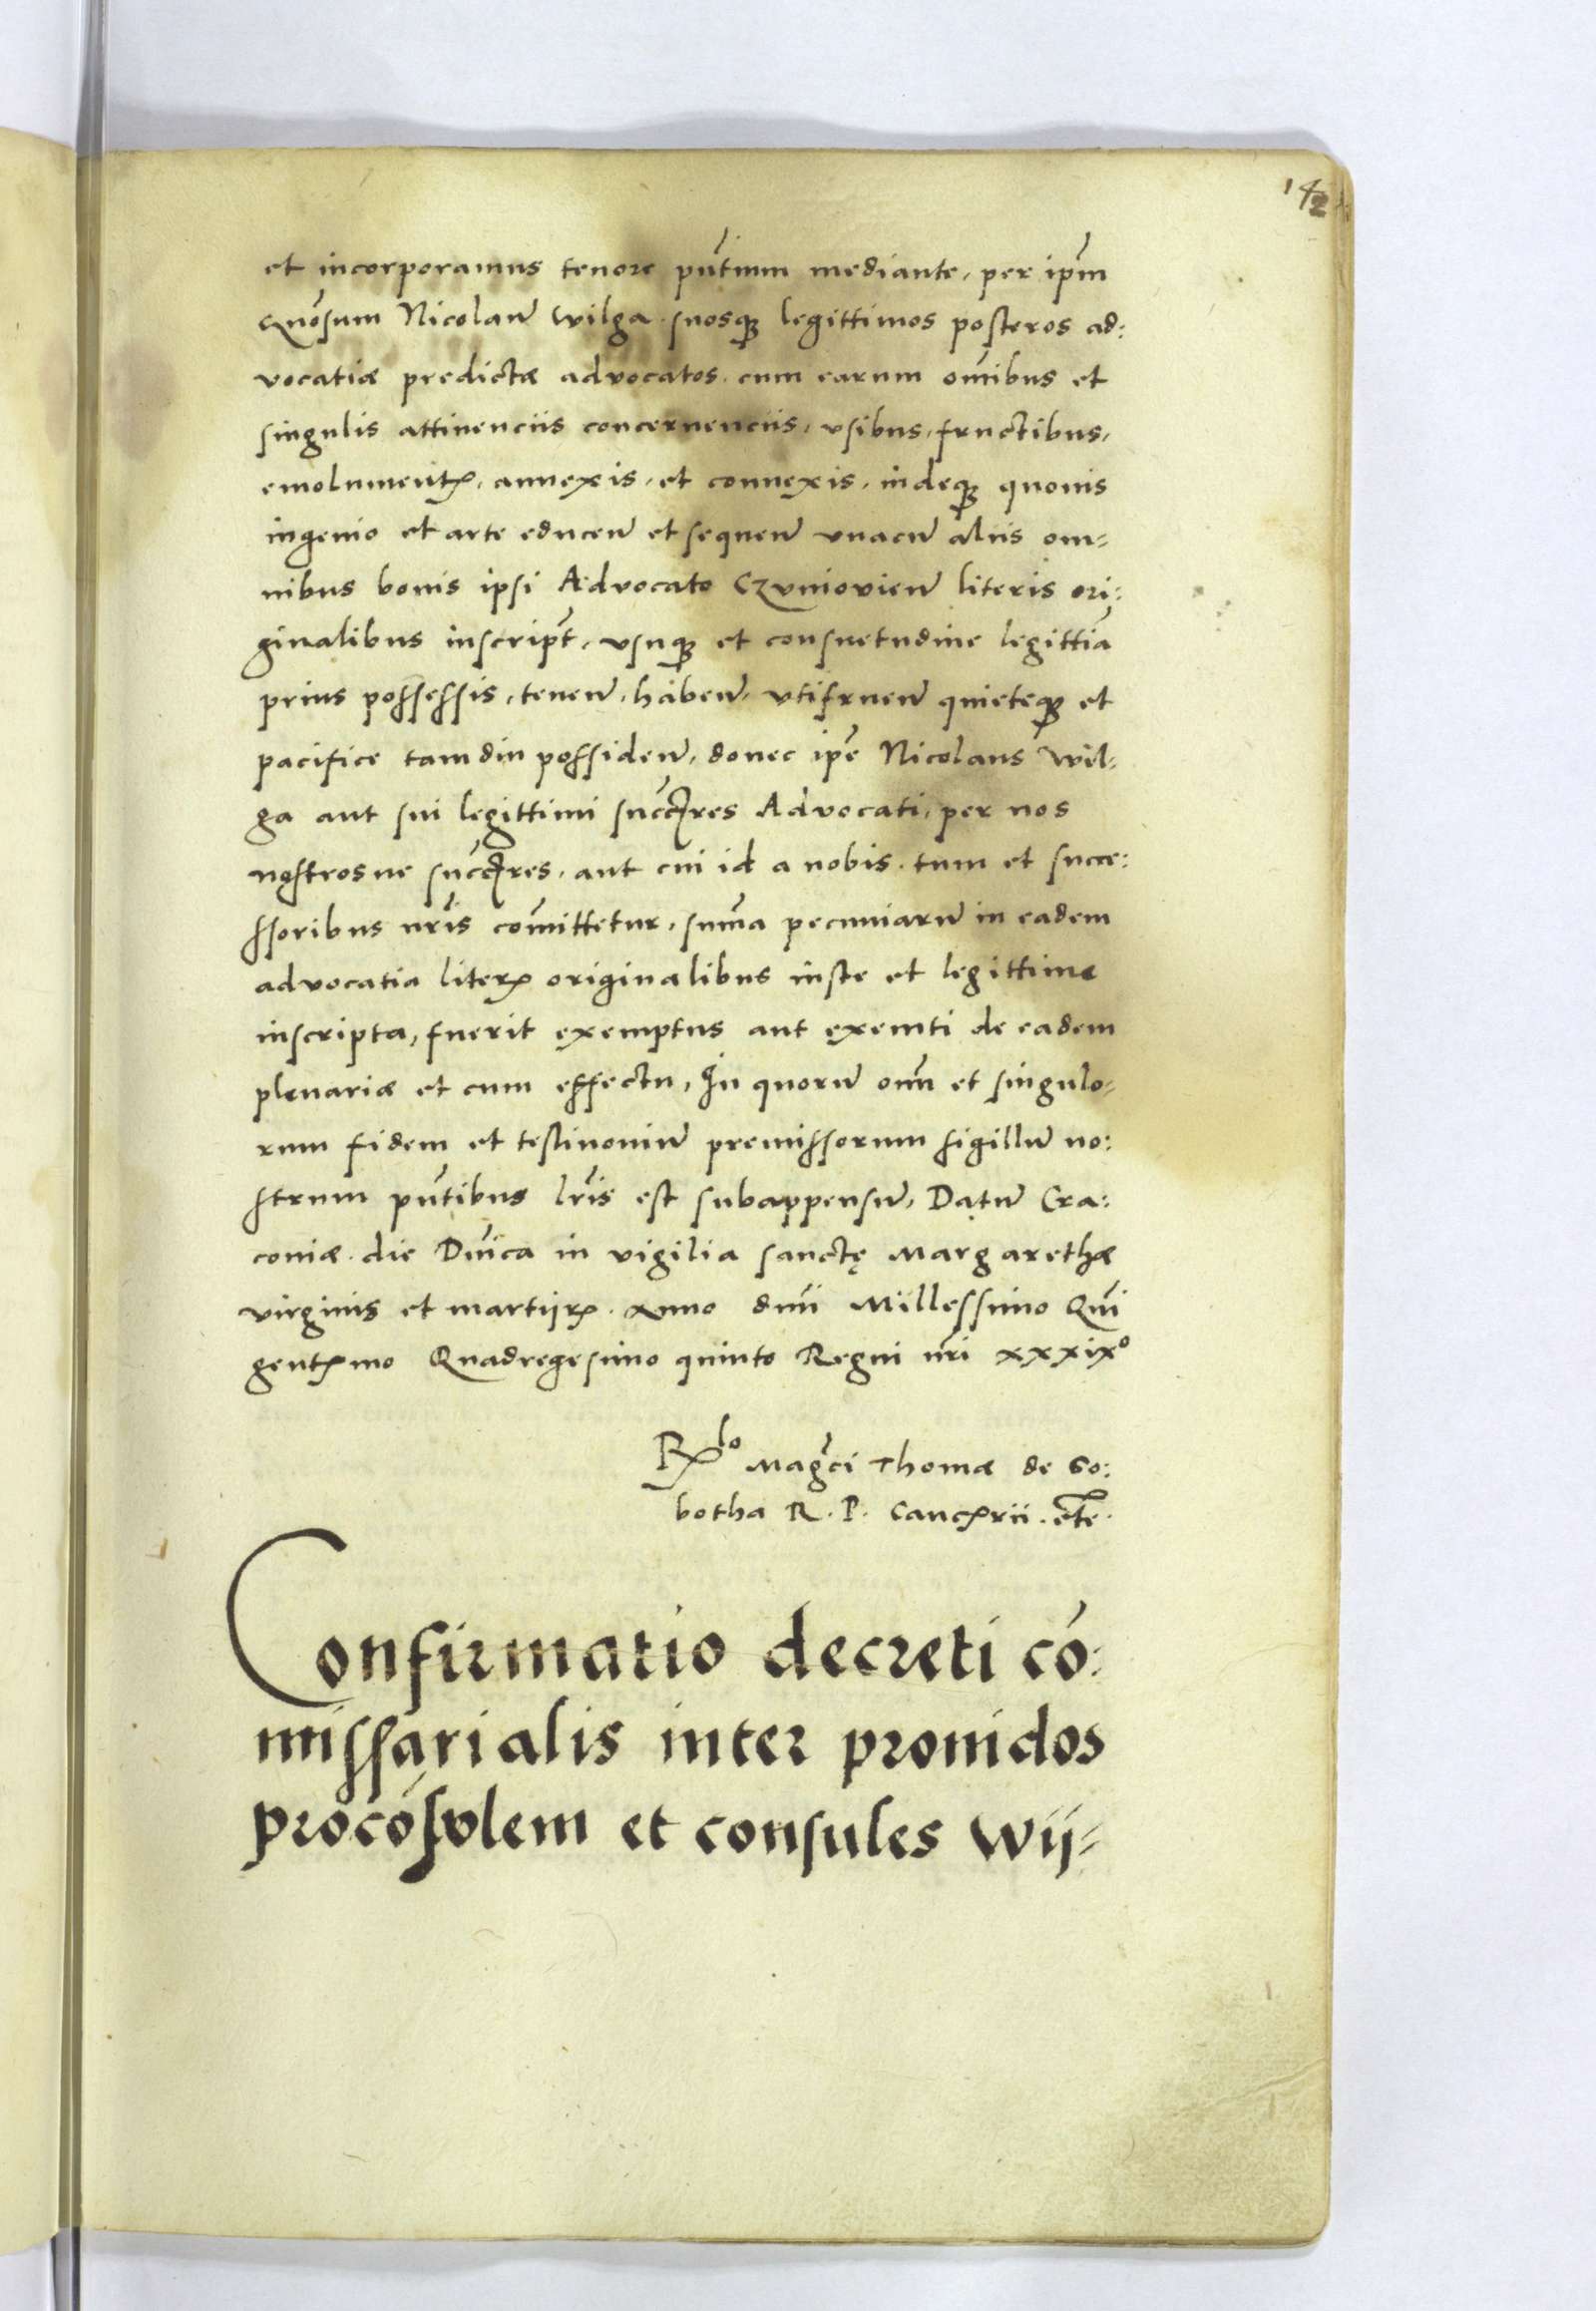 142
et incorporamus tenore pñtium mediante, per ipm̃
Gñosum Nicolaum Wilga suosq; legittimos posteros ad:
vocatiæ predictæ advocatos. cum earum om̃ibus et
singulis attinenciis concernenciis, vsibus, fructibus,
emolument̃, annexis, et connexis, indeq; quouis
ingenio et arte educeñ et sequeñ vnacũ aliis om-
nibus bonis ipsi Advocato Czvniovieñ literis ori:
ginalibus inscript̃, vsuq; et consuetudine legittiã
prius possessis, teneñ, habeñ, vtifrueñ quieteq; et
pacifice tam diu possideñ, donec ipẽ Nicolaus Wil-
ga aut sui legittimi succ̃res Advocati, per nos
nostrosue succ̃res, aut cui id a nobis. tum et succe:
ssoribus nr̃is com̃ittetur, sum̃a pecuniarũ in eadem
advocatia liter̃ originalibus iuste et legittime
inscripta, fuerit exemptus aut exemti de eadem
plenariæ et cum effectu, In quorũ om̃ et singulo-
rum fidem et testimoniũ premissorum sigillũ no:
strum pñtibus lr̃is est subappensũ, Datũ Cra:
coniæ. die Dñica in vigilia sanctę Margarethæ
virginis et martijr̃. Anno dñi Millessimo Qui
gent̃mo Quadregesimo quinto Regni nr̃i xxxixº
Rlo Mag̃ci Thomæ de So:
botha R. P. Canc̃rii. etc̃.
Confirmatio decreti cõ:
missarialis inter prouidos
procõsvlem et consules Wij-